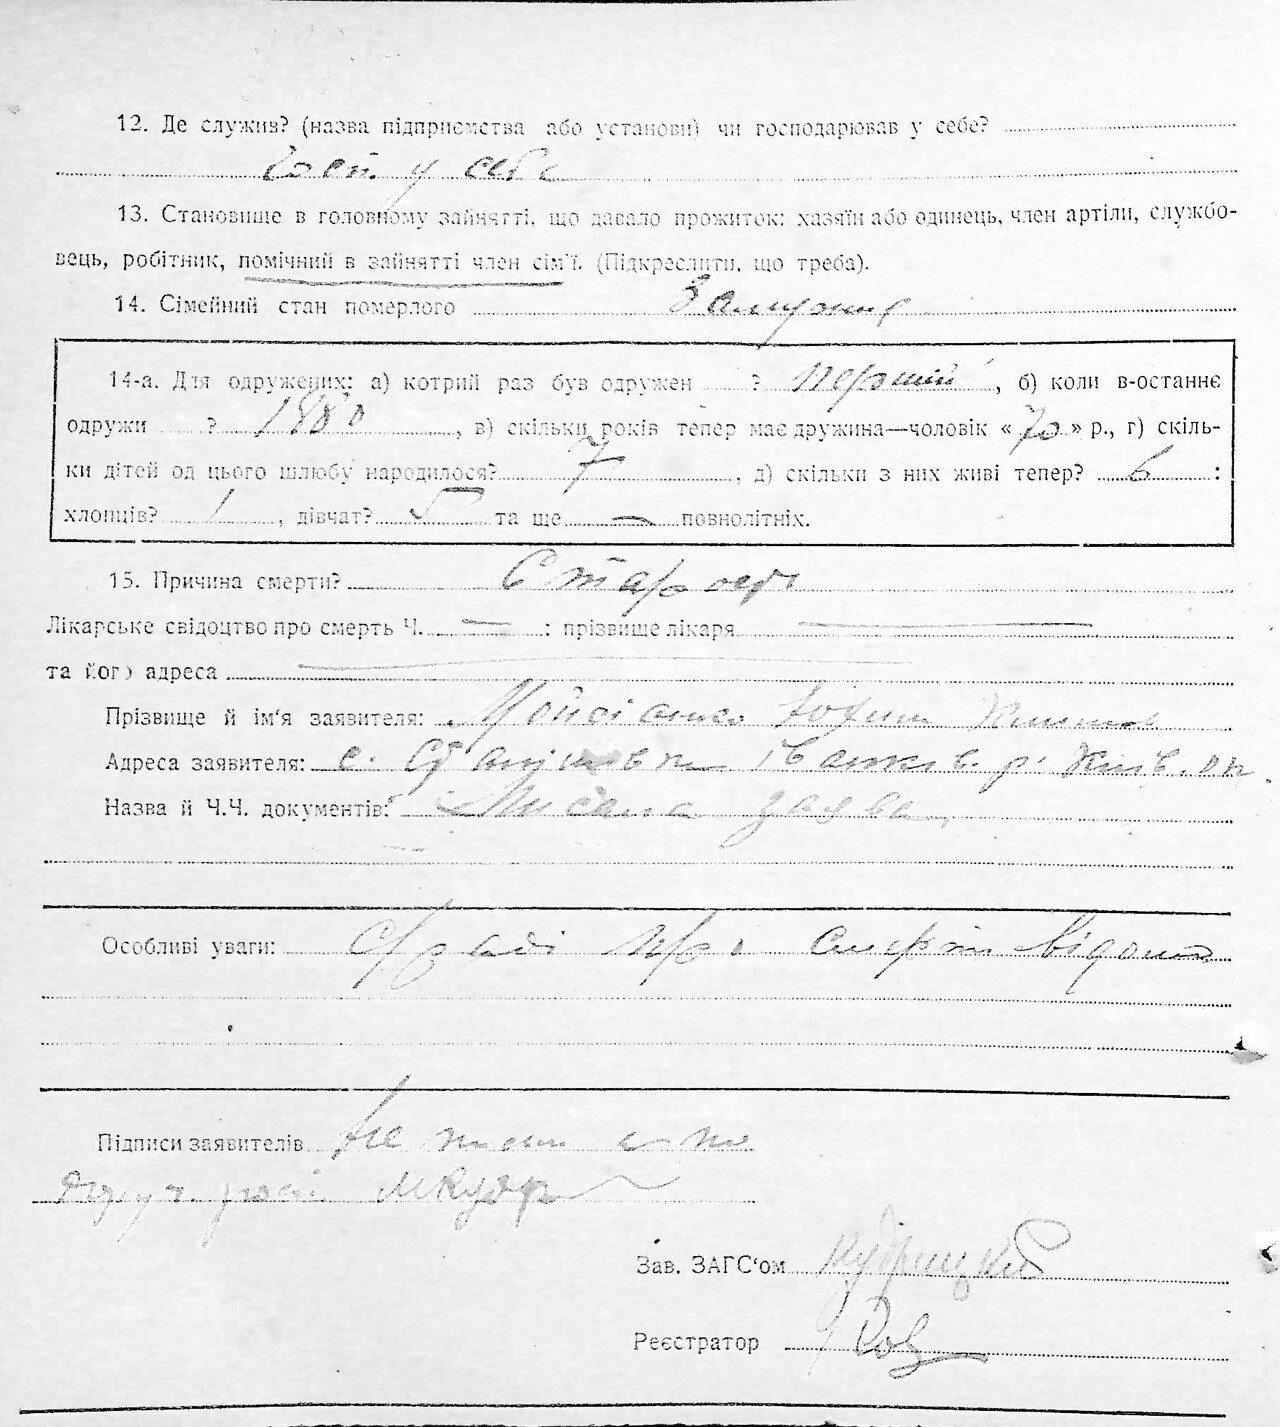 12. Де служив? (назва підприємства або установи) чи господарював у себе?
у себе
13. Становище в головному зайнятті, що давало прожиток: хазяїн або одинець, член артіли, службо-
вець, робітник, помічний в зайнятті член сім'ї. (Підкреслити, що треба).
14. Сімейний стан померлого Замужня
14-а. Для одружених: а) котрий раз був одружен ? перший, б) коли в-останнє
одружи ? 1880, в) скільки років тепер має дружина—чоловік «70» р., г) скіль-
ки дітей од цього шлюбу народилося? 7, д) скільки з них живі тепер? 6 :
хлопців? 1, дівчат? 5 та ще — повнолітніх.
15. Причина смерти? Старість
Лікарське свідоцтво про смерть Ч. — : прізвище лікаря —
та його адреса —
Прізвище й ім'я заявителя: Мойсієнко
Адреса заявителя: с. Іванків. р. Київ. ок.
Назва й Ч.Ч. документів: заява
Особливі уваги: с/раді про смерть відомо
Підписи заявителів
Зав. ЗАГС'ом Кудрицький
Реєстратор